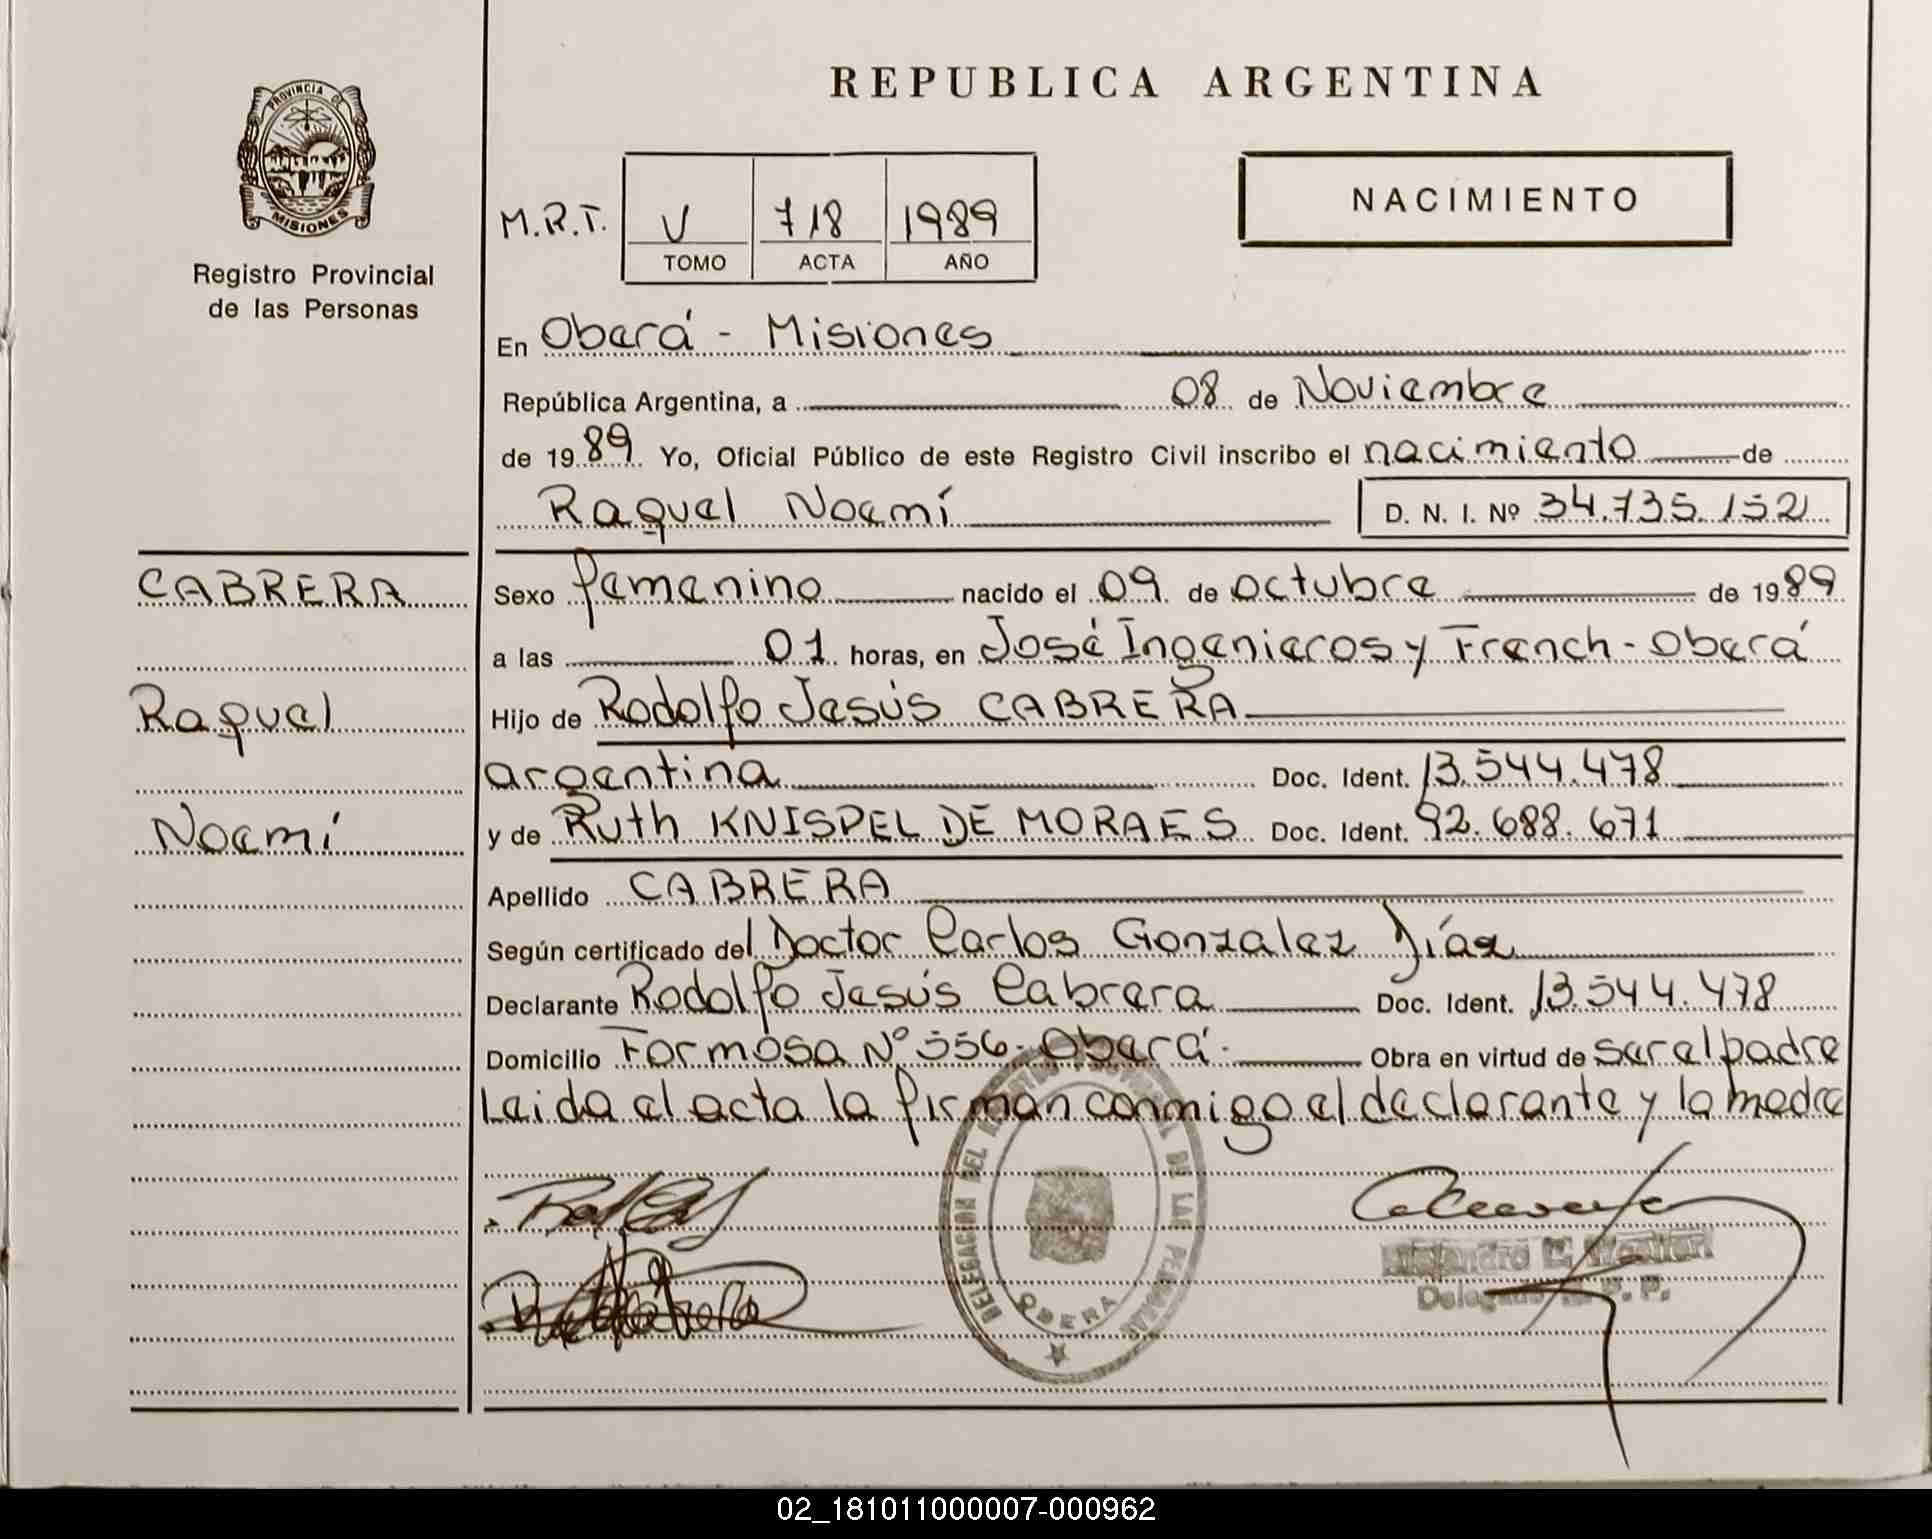 REPUBLICA ARGENTINA
PROVINCIA DE
MISIONES
Registro Provincial
de las Personas
M.R.T. V 718 1989
TOMO ACTA AÑO
NACIMIENTO
En Oberá - Misiones
República Argentina, a 08 de Noviembre
de 1989 Yo, Oficial Público de este Registro Civil inscribo el nacimiento de
Raquel Noemí D. N. I. Nº 34.735.152
CABRERA
Raquel
Noemí
Sexo femenino nacido el 09 de octubre de 1989
a las 01 horas, en José Ingenieros y French - Oberá
Hijo de Rodolfo Jesús CABRERA
argentina Doc. Ident. 13.544.478
y de Ruth KNISPEL DE MORAES Doc. Ident. 92.688.671
Apellido CABRERA
Según certificado del Doctor Carlos Gonzalez Díaz
Declarante Rodolfo Jesús Cabrera Doc. Ident. 13.544.478
Domicilio Formosa Nº 556 - Oberá - Obra en virtud de ser el padre
Leida el acta la firman conmigo el declarante y la madre
DELEGACION DEL REGISTRO PROVINCIAL DE LAS PERSONAS
OBERA
02_181011000007-000962